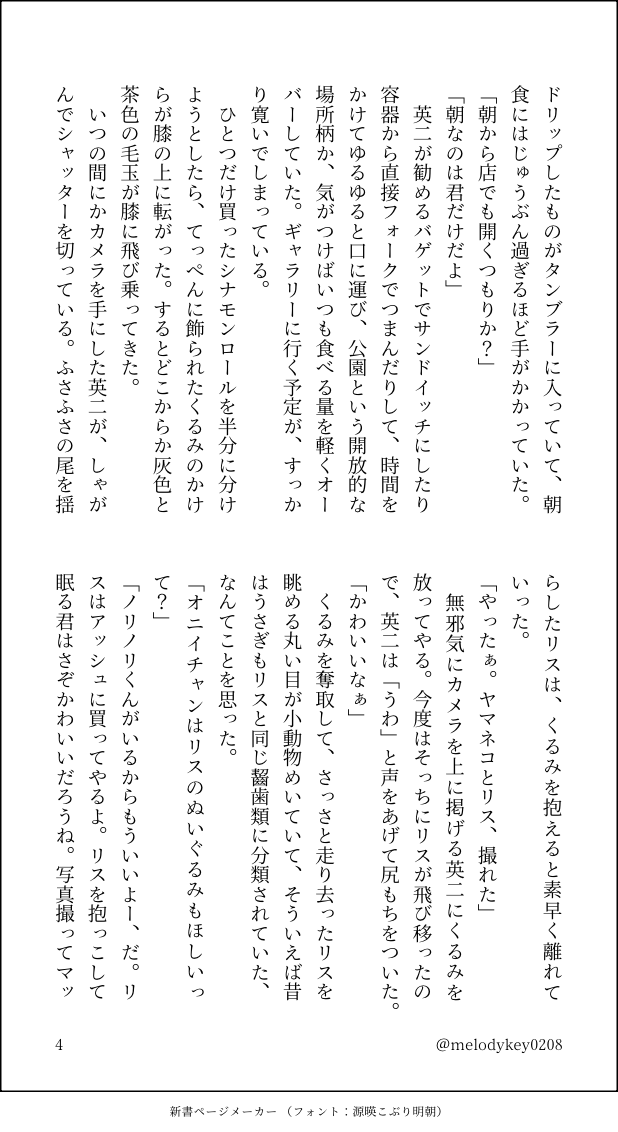 ドリップしたものがタンブラーに入っていて、朝
食にはじゅうぶん過ぎるほど手がかかっていた。
「朝から店でも開くつもりか？」
「朝なのは君だけだよ」
　英二が勧めるバゲットでサンドイッチにしたり
容器から直接フォークでつまんだりして、時間を
かけてゆるゆると口に運び、公園という開放的な
場所柄か、気がつけばいつも食べる量を軽くオー
バーしていた。ギャラリーに行く予定が、すっか
り寛いでしまっている。
　ひとつだけ買ったシナモンロールを半分に分け
ようとしたら、てっぺんに飾られたくるみのかけ
らが膝の上に転がった。するとどこからか灰色と
茶色の毛玉が膝に飛び乗ってきた。
　いつの間にかカメラを手にした英二が、しゃが
んでシャッターを切っている。ふさふさの尾を揺
らしたリスは、くるみを抱えると素早く離れて
いった。
「やったぁ。ヤマネコとリス、撮れた」
　無邪気にカメラを上に掲げる英二にくるみを
放ってやる。今度はそっちにリスが飛び移ったの
で、英二は「うわ」と声をあげて尻もちをついた。
「かわいいなぁ」
　くるみを奪取して、さっさと走り去ったリスを
眺める丸い目が小動物めいていて、そういえば昔
はうさぎもリスと同じ齧歯類に分類されていた、
なんてことを思った。
「オニイチャンはリスのぬいぐるみもほしいっ
て？」
「ノリノリくんがいるからもういいよー、だ。リ
スはアッシュに買ってやるよ。リスを抱っこして
眠る君はさぞかわいいだろうね。写真撮ってマッ
4
@melodykey0208
新書ページメーカー（フォント：源暎こぶり明朝）